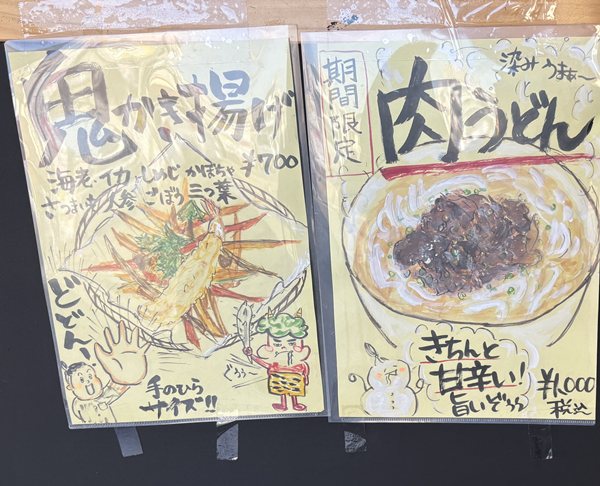 鬼かき揚げ
海老、イカ、しめじ かぼちゃ ¥700
さつまいも 人参 ごぼう 三つ葉
どどん!
手のひら
サイズ!!
期間限定
染みうまぁ〜
肉うどん
きちんと
甘辛い!
旨いぞぅぅ
¥1,000
税込